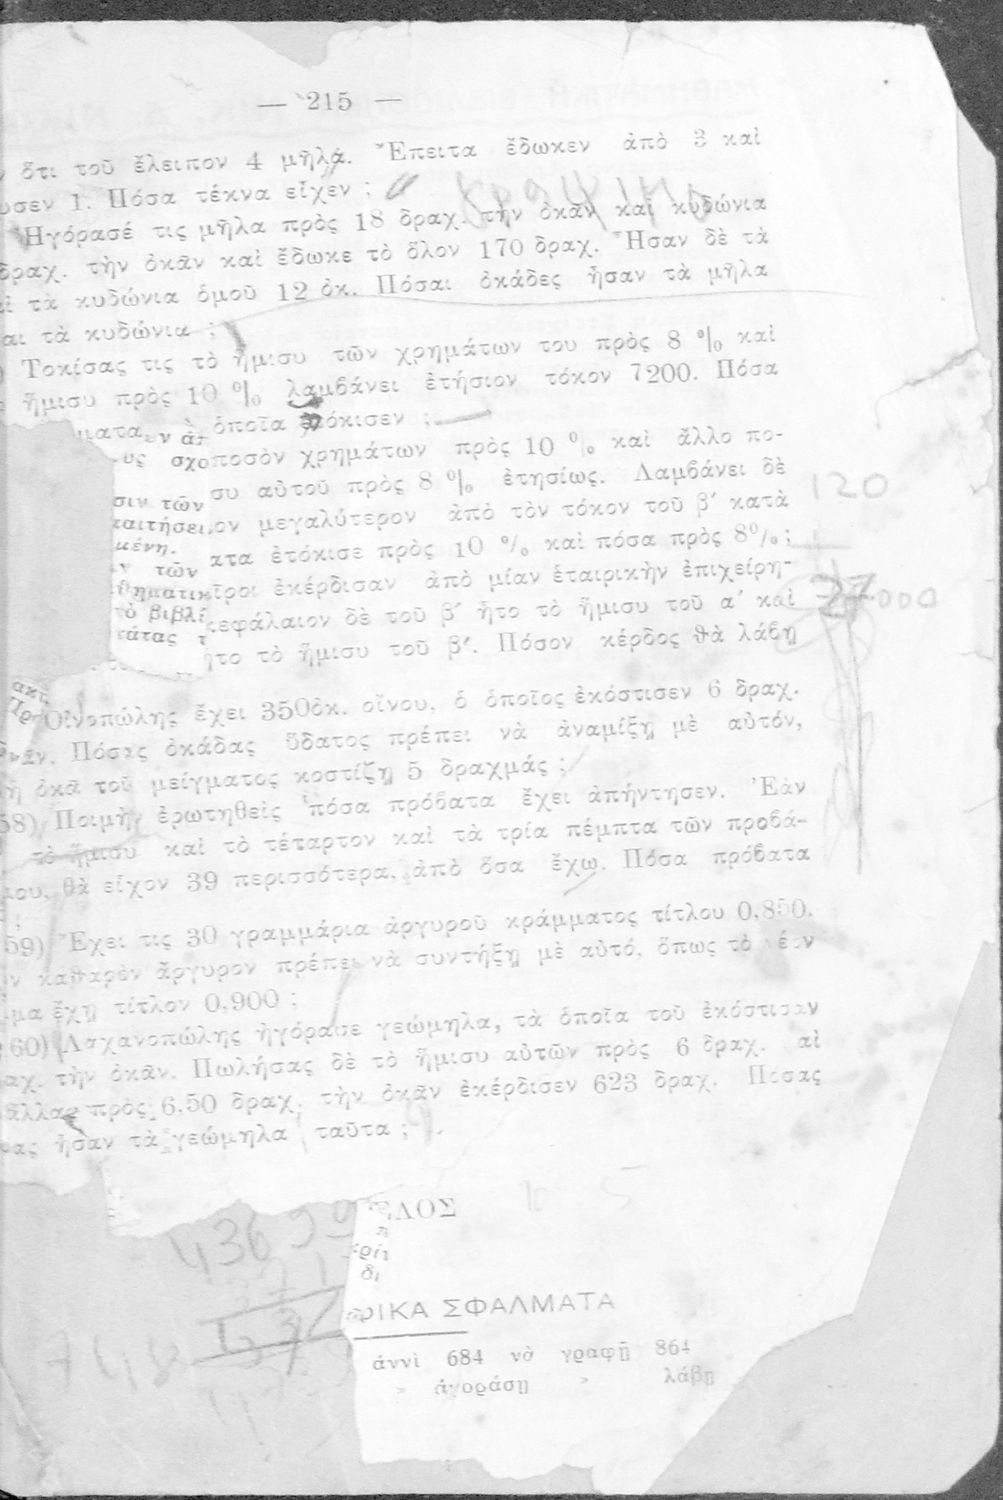 — 215 —
ὅτι τοῦ ἔλειπον 4 μῆλα. Ἔπειτα ἔδωκεν ἀπὸ 3 καὶ
υσεν 1. Πόσα τέκνα εἶχεν ;
Ἠγόρασέ τις μῆλα πρὸς 18 δραχ. τὴν ὀκᾶν καὶ κυδώνια
δραχ. τὴν ὀκᾶν καὶ ἔδωκε τὸ ὅλον 170 δραχ. Ἦσαν δὲ τὰ
αὶ τὰ κυδώνια ὁμοῦ 12 ὀκ. Πόσαι ὀκάδες ἦσαν τὰ μῆλα
αι τὰ κυδώνια ;
Τοκίσας τις τὸ ἥμισυ τῶν χρημάτων του πρὸς 8 % καὶ
ἥμισυ πρὸς 10 % λαμβάνει ἐτήσιον τόκον 7200. Πόσα
ματα ὁποῖα ἐτόκισεν ;
ποσὸν χρημάτων πρὸς 10 % καὶ ἄλλο πο-
συ αὐτοῦ πρὸς 8 % ἐτησίως. Λαμβάνει δὲ
ον μεγαλύτερον ἀπὸ τὸν τόκον τοῦ β′ κατὰ
ατα ἐτόκισε πρὸς 10 % καὶ πόσα πρὸς 8% ;
ῖροι ἐκέρδισαν ἀπὸ μίαν ἑταιρικὴν ἐπιχείρη-
κεφάλαιον δὲ τοῦ β′ ἦτο τὸ ἥμισυ τοῦ α′ καὶ
ἦτο τὸ ἥμισυ τοῦ β′. Πόσον κέρδος θὰ λάβῃ
σχο
σιν τῶν
αιτήσει
μένη.
τῶν
θηματικ
τὸ βιβλί
τάτας τ
120
27000
Οἰνοπώλης ἔχει 350ὀκ. οἴνου, ὁ ὁποῖος ἐκόστισεν 6 δραχ.
Πόσας ὀκάδας ὕδατος πρέπει νὰ ἀναμίξῃ μὲ αὐτόν,
ἡ ὀκᾶ τοῦ μείγματος κοστίζῃ 5 δραχμάς ;
58) Ποιμὴν ἐρωτηθεὶς πόσα πρόβατα ἔχει ἀπήντησεν. Ἐὰν
τὸ ἥμισυ καὶ τὸ τέταρτον καὶ τὰ τρία πέμπτα τῶν προβά-
μου, θὰ εἶχον 39 περισσότερα, ἀπὸ ὅσα ἔχω. Πόσα πρόβατα
;
59) Ἔχει τις 30 γραμμάρια ἀργυροῦ κράμματος τίτλου 0,850.
ν καθαρὸν ἄργυρον πρέπει νὰ συντήξῃ μὲ αὐτό, ὅπως τὸ νέον
μα ἔχῃ τίτλον 0,900 ;
60) Λαχανοπώλης ἠγόρασε γεώμηλα, τὰ ὁποῖα τοῦ ἐκόστισαν
αχ. τὴν ὀκᾶν. Πωλήσας δὲ τὸ ἥμισυ αὐτῶν πρὸς 6 δραχ. αἱ
ἄλλας πρὸς 6,50 δραχ. τὴν ὀκᾶν ἐκέρδισεν 623 δραχ. Πόσας
ας ἦσαν τὰ γεώμηλα ταῦτα ;
ΛΟΣ
ΡΙΚΑ ΣΦΑΛΜΑΤΑ
ἀννὶ 684 νὰ γραφῇ 864
» ἀγοράσῃ » λάβῃ